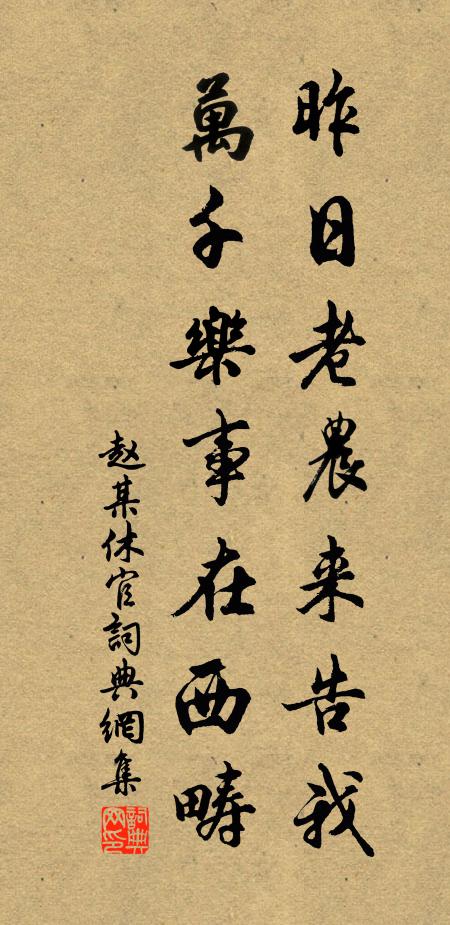 昨日老農来告我
萬千樂事在西疇
赵某休官詞典網集
詞典网印